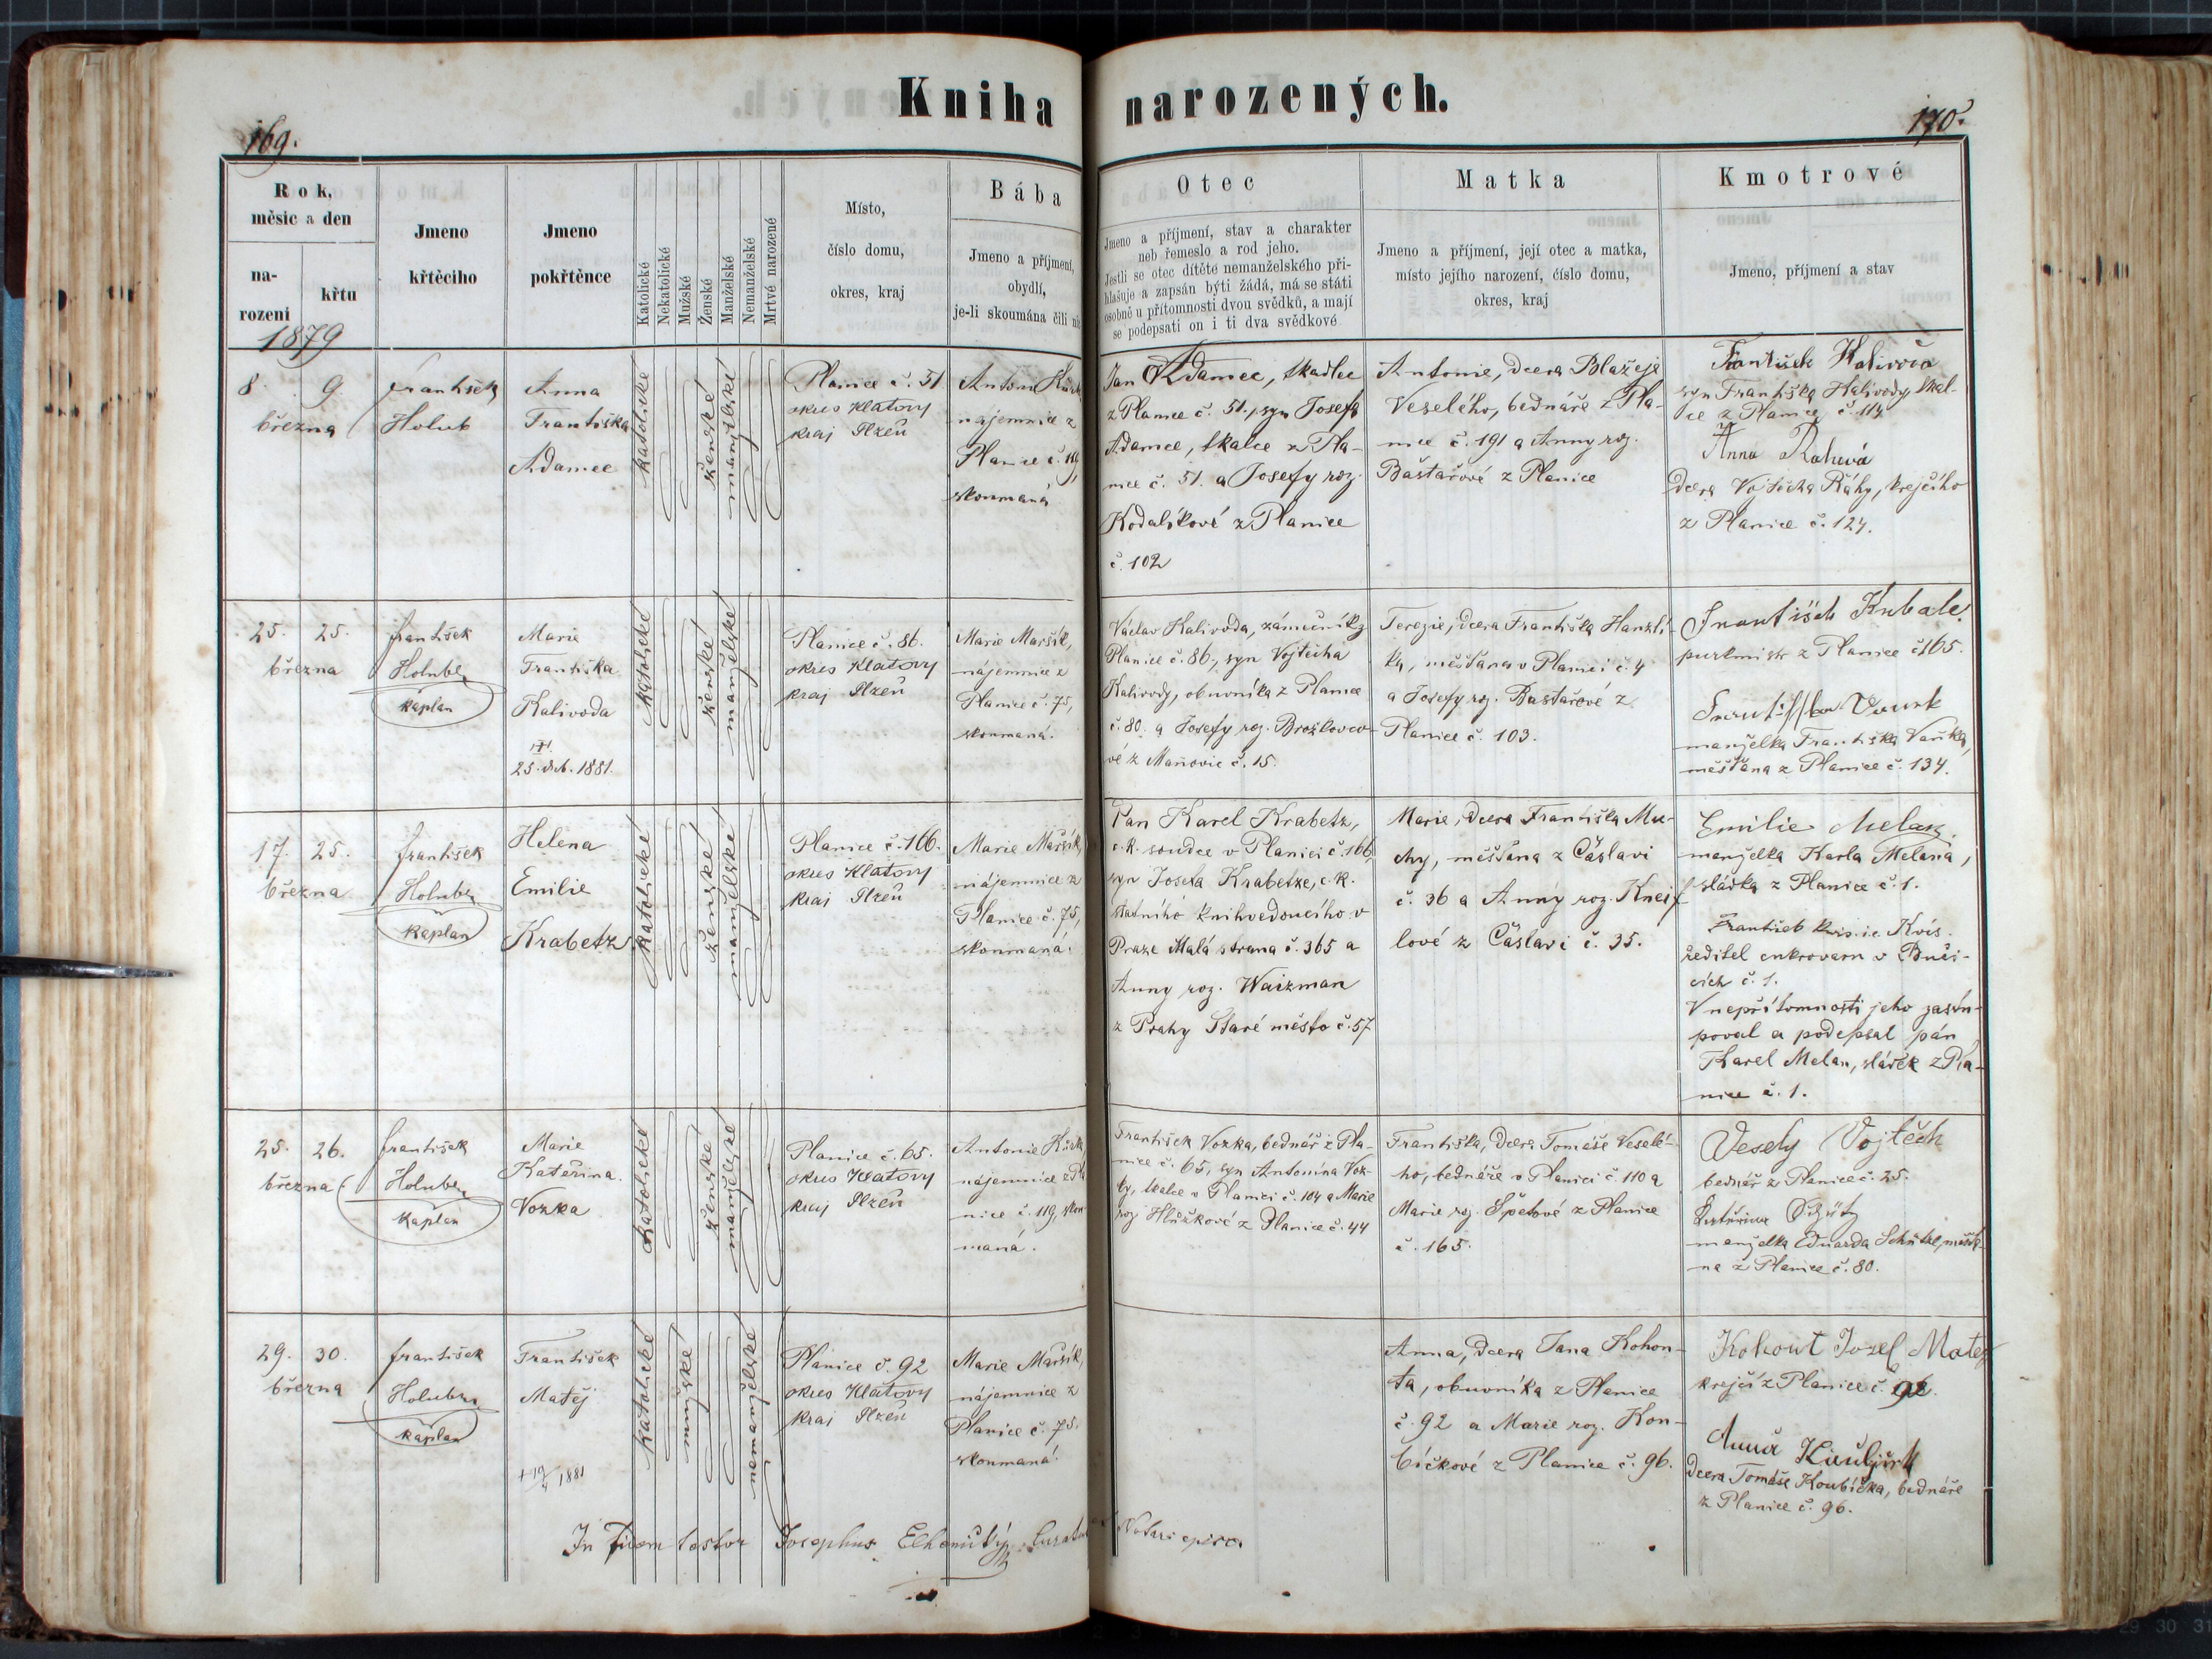 Kniha narozených.
169.
170.
Rok, měsic a den
na-
rozeni
křtu
Jmeno
křtěciho
Jmeno
pokřtěnce
Katolické
Nekatolické
Mužské
Ženské
Manželské
Nemanželské
Mrtvé narozené
Místo,
číslo domu,
okres, kraj
Bába
Jmeno a příjmení,
obydlí,
je-li skoumána čili
Otec
Jmeno a příjmení, stav a charakter
neb řemeslo a rod jeho.
Jestli se otec dítěte nemanželského při-
hlašuje a zapsán býti žádá, má se státi
osobně u přítomnosti dvou svědků, a mají
se podepsati on i ti dva svědkové
Matka
Jmeno a příjmení, její otec a matka,
místo jejího narození, číslo domu,
okres, kraj
Kmotrové
Jmeno, příjmení a stav
1879
8. 9.
března
František
Holub
Anna
Františka
Adamec
katolické
ženské
manželské
Planice č. 51
okres Klatovy
kraj Plzeň
nájemnice z
Planice č. 119,
skoumaná
Jan Adamec, tkadlec
z Planice č. 51., syn Josefa
Adamce, tkalce z Pla-
nice č. 51. a Josefy roz.
Kodalíkové z Planice
č. 102
Antonie, dcera Blažeje
Veselého, bednáře z Pla-
nice č. 191 a Anny roz.
Baštařové z Planice
František Kalivoda
syn Františka Kalivody, tkal-
ce z Planice č. 114
Anna
dcera Vojtěcha krejčího
z Planice č. 124.
25. 25.
března
František
Holub
kaplan
Marie
Františka
Kalivoda
25. 1881.
katolické
ženské
manželské
Planice č. 86.
okres Klatovy
kraj Plzeň
Marie Maršík,
nájemnice z
Planice č. 75,
skoumaná.
Václav Kalivoda, zámečník z
Planice č. 86., syn Vojtěcha
Kalivody, obuvníka z Planice
č. 80. a Josefy roz. Brožkovco-
vé z Maňovic č. 15.
Terezie, dcera Františka Hanzlí-
ka, měšťana v Planici č. 4
a Josefy roz. Baštařové z
Planice č. 103.
František Kubale
purkmistr z Planice č 165.
manželka Františka Vaňka,
měšťana z Planice č. 134.
17. 25.
března
František
Holub
kaplan
Helena
Emilie
Krabetz
katolické
ženské
manželské
Planice č. 166.
okres Klatovy
kraj Plzeň
Marie Maršík,
nájemnice z
Planice č. 75,
skoumaná.
Pan Karel Krabetz,
c. k. soudce v Planici č. 166,
syn Josefa Krabetze, c. k.
statního knihvedoucího v
Praze Malá strana č. 365 a
Anny roz. Waizman
z Prahy Staré město č. 57
Marie, dcera Františka Mu-
chy, měšťana z Čáslavi
č. 36 a Anny roz. Kneif-
lové z Čáslavi č. 35.
Emilie Melan
manželka Karla Melana,
sládka z Planice č. 1.
František Kvis. i.e. Kvis.
ředitel cukrovaru v
cích č. 1.
V nepřítomnosti jeho zastu-
poval a podepsal pán
Karel Melan, sládek z Pla-
nice č. 1.
25. 26.
března
František
Holub
kaplan
Marie
Kateřina
Vozka
katolické
ženské
manželské
Planice č. 65.
okres Klatovy
kraj Plzeň
Antonie
nájemnice z Pla
nice č. 119, skou
maná.
František Vozka, bednář z Pla-
nice č. 65, syn Antonína Voz-
ky, tkalce v Planici č. 104 a Marie
roz. Hlůžkové z Planice č. 44
Františka, dcera Tomáše Veselé-
ho, bednáře v Planici č. 110 a
Marie roz. Špetové z Planice
č. 165.
Vesely Vojtěch
bednář z Planice č. 25.
manželka Eduarda Schütze, měšťa-
na z Planice č. 80.
29. 30.
března
František
Holub
kaplan
František
Matěj
† 19/4 1881
katolické
mužské
nemanželské
Planice č. 92
okres Klatovy
kraj Plzeň
Marie Maršík,
nájemnice z
Planice č. 75.
skoumaná.
Anna, dcera Jana Kohou-
ta, obuvníka z Planice
č. 92 a Marie roz. Kou-
bíčkové z Planice č. 96.
Kohout Jozef Matej
krejčí z Planice č. 92.
Anna
dcera Tomáše Koubíčka, bednáře
z Planice č. 96.
In Fidem testor Josephus